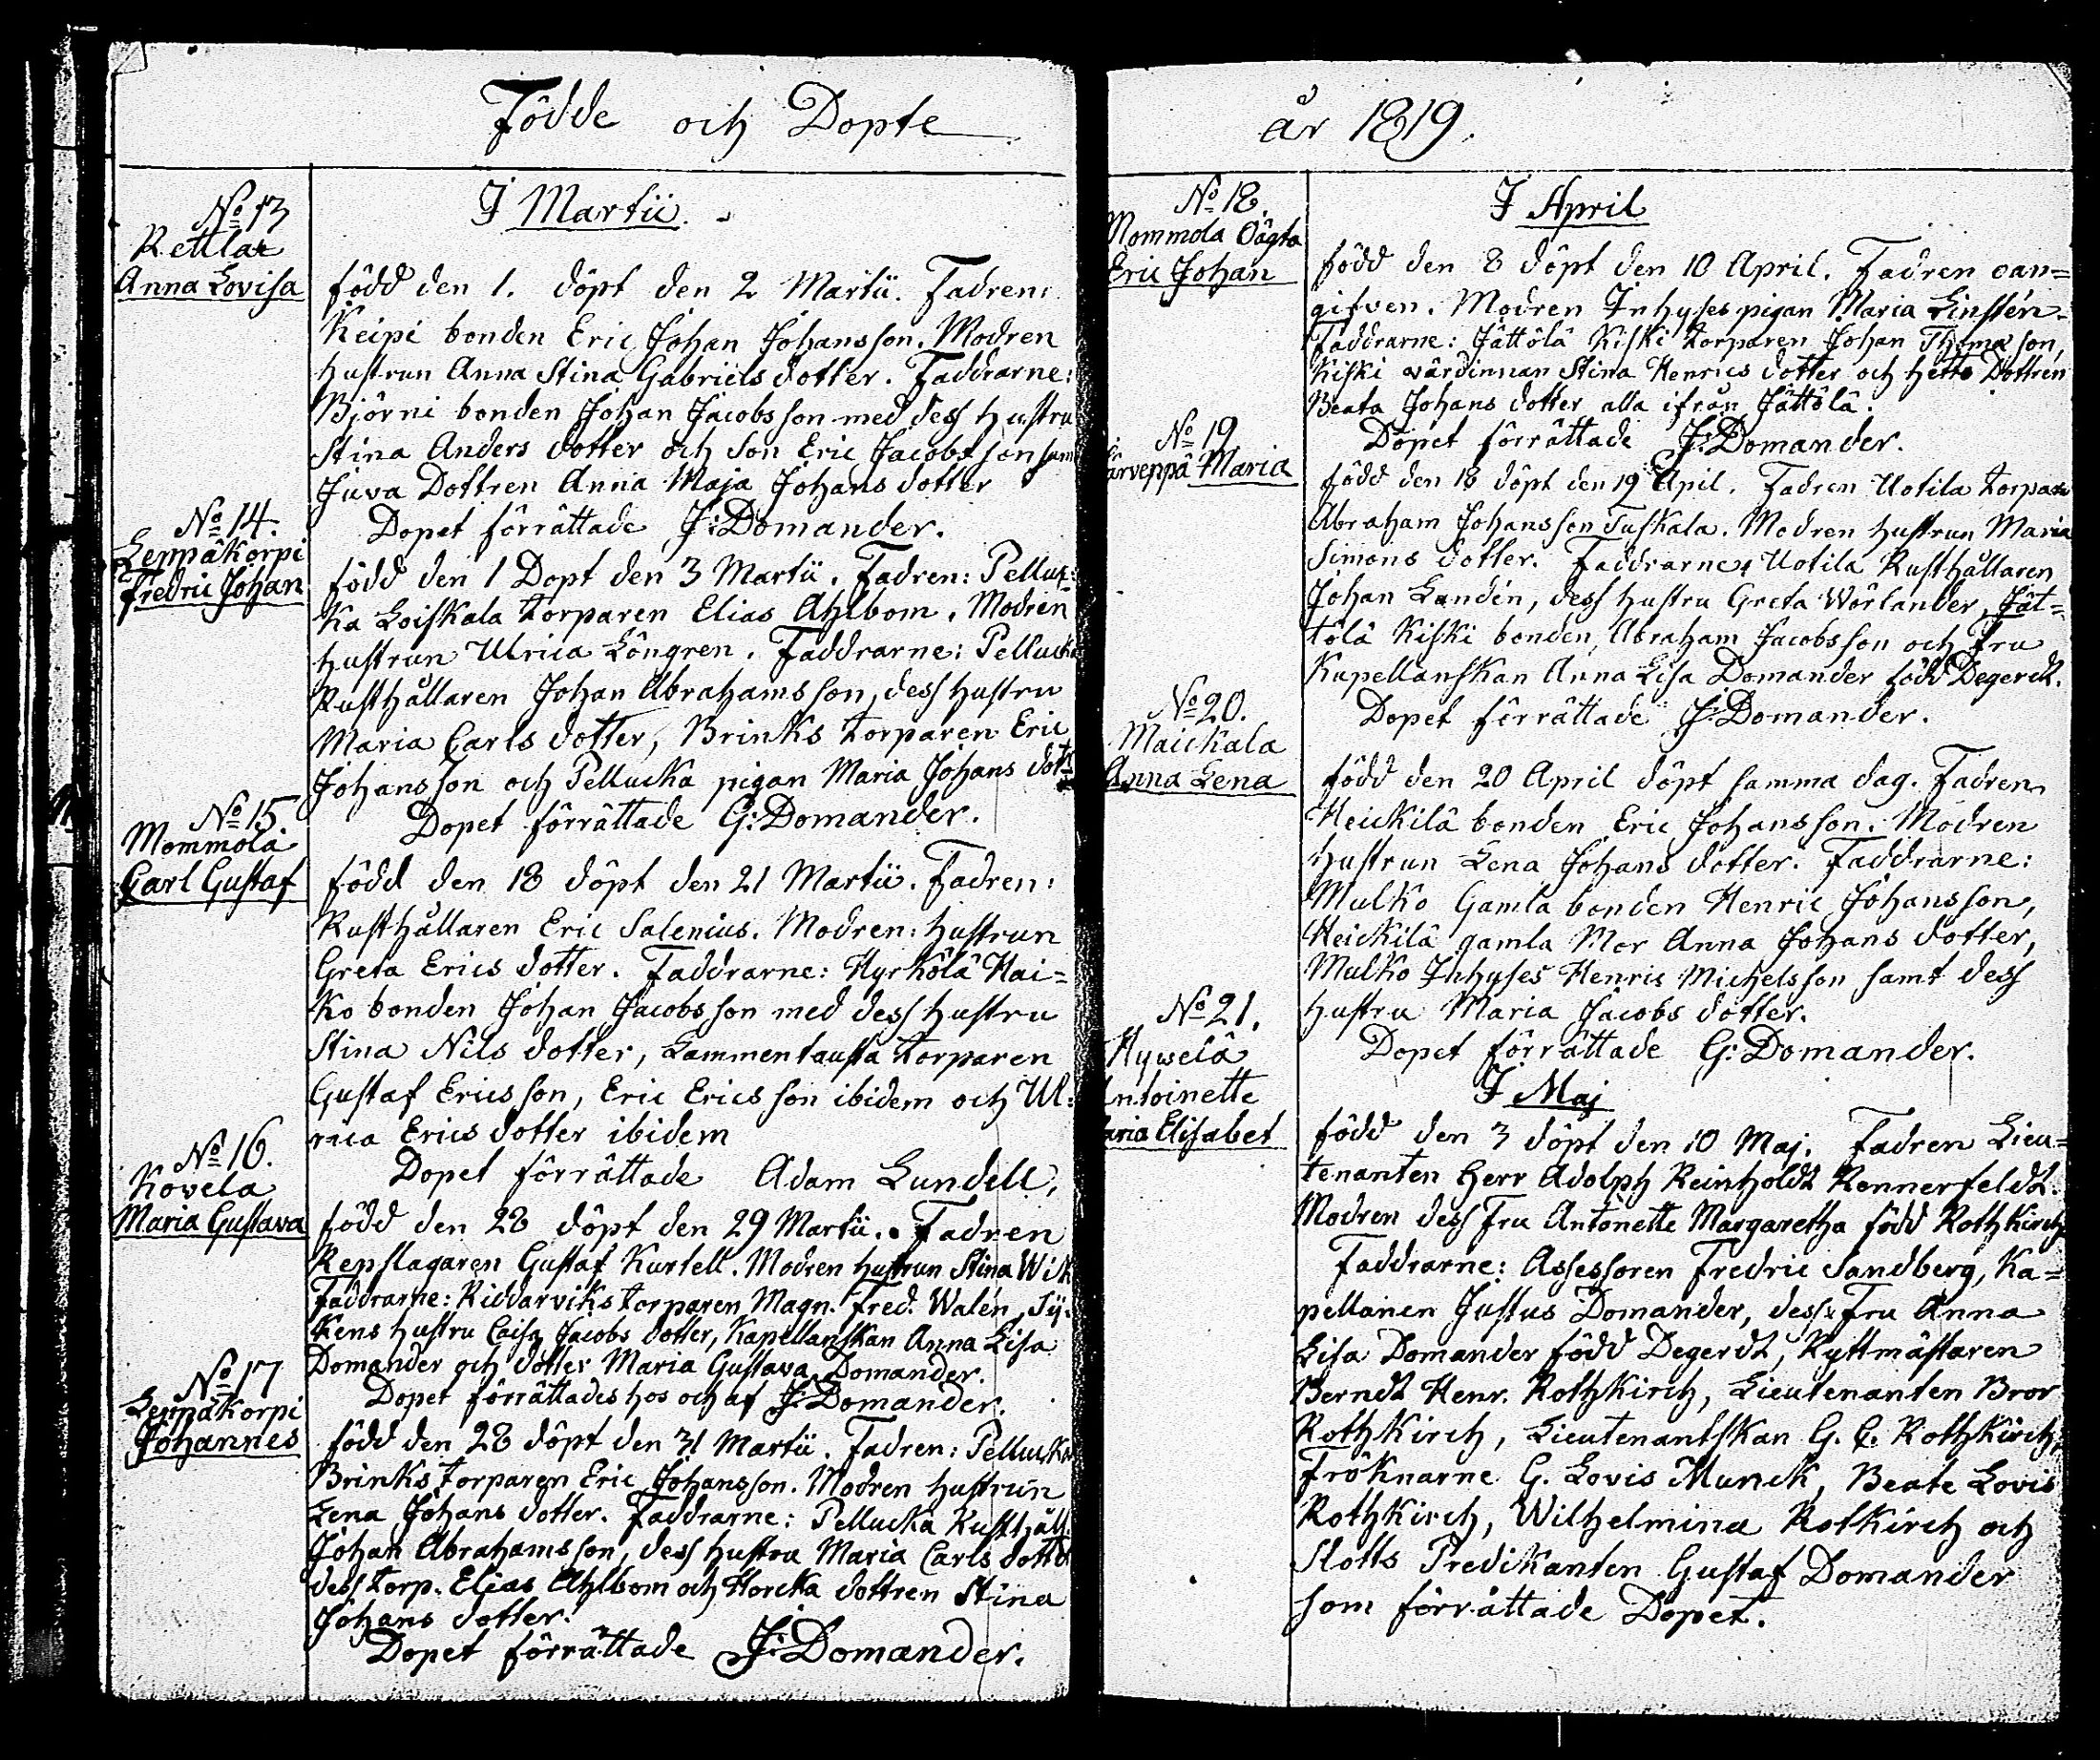 Födde och Döpte
No 13
Rettlar
Anna Lovisa
I Martii.
född den 1. döpt den 2 Martii. Fadren:
Keipi bonden Eric Johan Johansson. Modren
hustrun Anna Stina Gabriels dotter. Faddrarne:
Björni bonden Johan Jacobsson med dess hustru
Stina Anders dotter och Son Eric Jacobsson samt
Juva Dottren Anna Maja Johans dotter
Dopet förrättade J: Domander.
No 14.
Leppäkorpi
Fredric Johan
född den 1 Döpt den 3 Martii. Fadren: Pelluc=
ka Loiskala torparen Elias Ahlbom. Modren
hustrun Ulrica Löngren. Faddrarne: Pellucka
Rusthållaren Johan Abrahamsson, dess hustru
Maria Carls dotter, Brinks torparen Eric
Johansson och Pellucka pigan Maria Johans dott
Dopet förrättade G: Domander.
No 15.
Mommola
Carl Gustaf
född den 18 döpt den 21 Martii. Fadren:
Rusthållaren Eric Salenius. Modren: hustrun
Greta Erics dotter. Faddrarne: Hyrkölä Hai=
ko bonden Johan Jacobsson med dess hustru
Stina Nils dotter, Lammentausta torparen
Gustaf Ericsson, Eric Ericsson ibidem och Ul:
rica Erics dotter ibidem
Dopet förrättade Adam Lundell.
No 16.
Kovela
Maria Gustava
född den 28 döpt den 29 Martii. Fadren
Repslagaren Gustaf Kurtell. Modren hustrun Stina Wik
Faddrarne: Riddarviks torparen Magn. Fred. Walén, Sy:
kens hustru Caisa Jacobs dotter, Kapellanskan Anna Lisa
Domander och dotter Maria Gustava Domander.
Dopet förrättades hos och af J: Domander.
No 17
Leppäkorpi
Johannes
född den 28 döpt den 31 Martii. Fadren: Pellucka
Brinks torparen Eric Johansson. Modren hustrun
Lena Johans dotter. Faddrarne: Pellucka Rusthåll.
Johan Abrahamsson, dess hustru Maria Carls dotter
dess torp. Elias Ahlbom och Horcka dottren Stina
Johans dotter.
Dopet förrättade J: Domander.
år 1819.
No 18.
Mommola Oägta
Eric Johan
I April
född den 8 döpt den 10 April. Fadren oan=
gifven. Modren Inhyses pigan Maria Linstén.
Faddrarne: Jättölä Kiski torparen Johan Thomasson,
Kiski värdinnan Stina Henrics dotter och Dottren
Beata Johans dotter alla ifrån Jättölä.
Dopet förrättade J: Domander.
No 19
ärvenpä Maria
född den 18 döpt den 19 April. Fadren Uotila torparn
Abraham Johansson Tuskala. Modren hustrun Maria
Simons dotter. Faddrarne: Uotila Rusthållaren
Johan Landén, dess hustru Greta Wörlander, Jät=
tölä Kiski bonden Abraham Jacobsson och Fru
Kapellanskan Anna Lisa Domander född Degerdt.
Dopet förrättade J: Domander.
No 20.
Maickala
Anna Lena
född den 20 April döpt samma dag. Fadren
Heickilä bonden Eric Johansson. Modren
hustrun Lena Johans dotter. Faddrarne:
Mulko Gamla bonden Henric Johansson,
Heickilä gamla Mor Anna Johans dotter,
Mulko Inhyses Henric Michelsson samt dess
hustru Maria Jacobs dotter.
Dopet förrättade G: Domander.
No 21.
Hywelä
Antoinette
aria Elisabet
I Maj
född den 3 döpt den 10 Maj. Fadren Lieu=
tenanten Herr Adolph Reinholdt Rennerfeldt.
Modren dess Fru Antonette Margaretha född Rothkirch
Faddrarne: Assessoren Fredric Sandberg, Ka=
pellanen Justus Domander, dess Fru Anna
Lisa Domander född Degerdt, Ryttmästaren
Berndt Henr. Rothkirch, Lieutenanten Bror
Rothkirch, Lieutenantskan G. C. Rothkirch,
Fröknarne G. Lovis Munck, Beate Lovis
Rothkirch, Wilhelmina Rotkirch och
Slotts Predikanten Gustaf Domander
som förrättade Dopet.